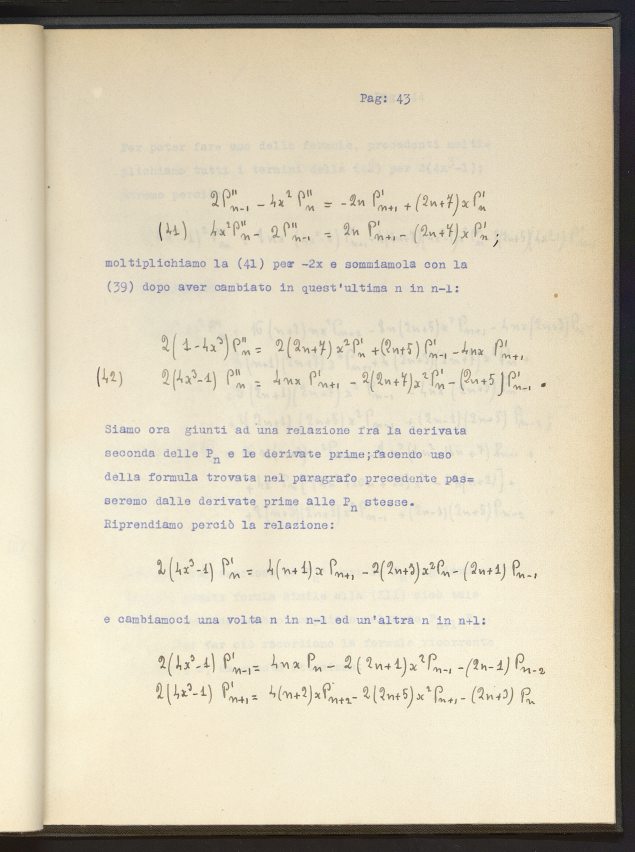 Pag: 43
2P''ₙ₋₁ - 4x² P''ₙ = -2n P'ₙ₊₁ + (2n+7)x P'ₙ
(41) 4x²P''ₙ - 2P''ₙ₋₁ = 2n P'ₙ₊₁ - (2n+7)x P'ₙ;
moltiplichiamo la (41) per -2x e sommiamola con la
(39) dopo aver cambiato in quest'ultima n in n-1:
2(1-4x³)P''ₙ = 2(2n+7)x²P'ₙ + (2n+5)P'ₙ₋₁ - 4nx P'ₙ₊₁
(42) 2(4x³-1) P''ₙ = 4nx P'ₙ₊₁ - 2(2n+7)x²P'ₙ - (2n+5)P'ₙ₋₁.
Siamo ora giunti ad una relazione fra la derivata
seconda delle Pₙ e le derivate prime;facendo uso
della formula trovata nel paragrafo precedente pas=
seremo dalle derivate prime alle Pₙ stesse.
Riprendiamo perciò la relazione:
2(4x³-1) P'ₙ = 4(n+1)x Pₙ₊₁ - 2(2n+3)x²Pₙ - (2n+1) Pₙ₋₁
e cambiamoci una volta n in n-1 ed un'altra n in n+1:
2(4x³-1) P'ₙ₋₁ = 4nx Pₙ - 2(2n+1)x²Pₙ₋₁ - (2n-1) Pₙ₋₂
2(4x³-1) P'ₙ₊₁ = 4(n+2)xPₙ₊₂ - 2(2n+5)x²Pₙ₊₁ - (2n+3) Pₙ